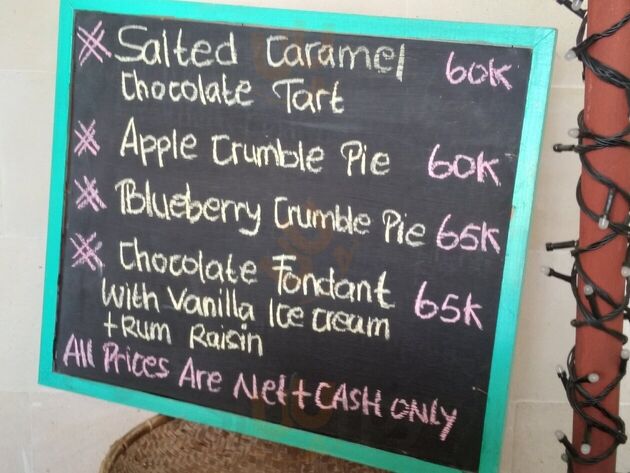 Salted Caramel 60K
Chocolate Tart
Apple Crumble Pie 60K
Blueberry Crumble Pie 65K
Chocolate Fondant 65K
With Vanilla Ice cream
+ Rum Raisin
All Prices Are Nett CASH ONLY